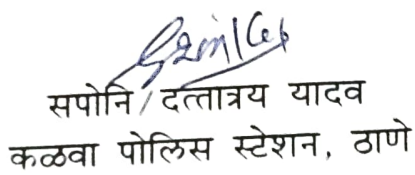 सपोनि/दत्तात्रय यादव
कळवा पोलिस स्टेशन, ठाणे